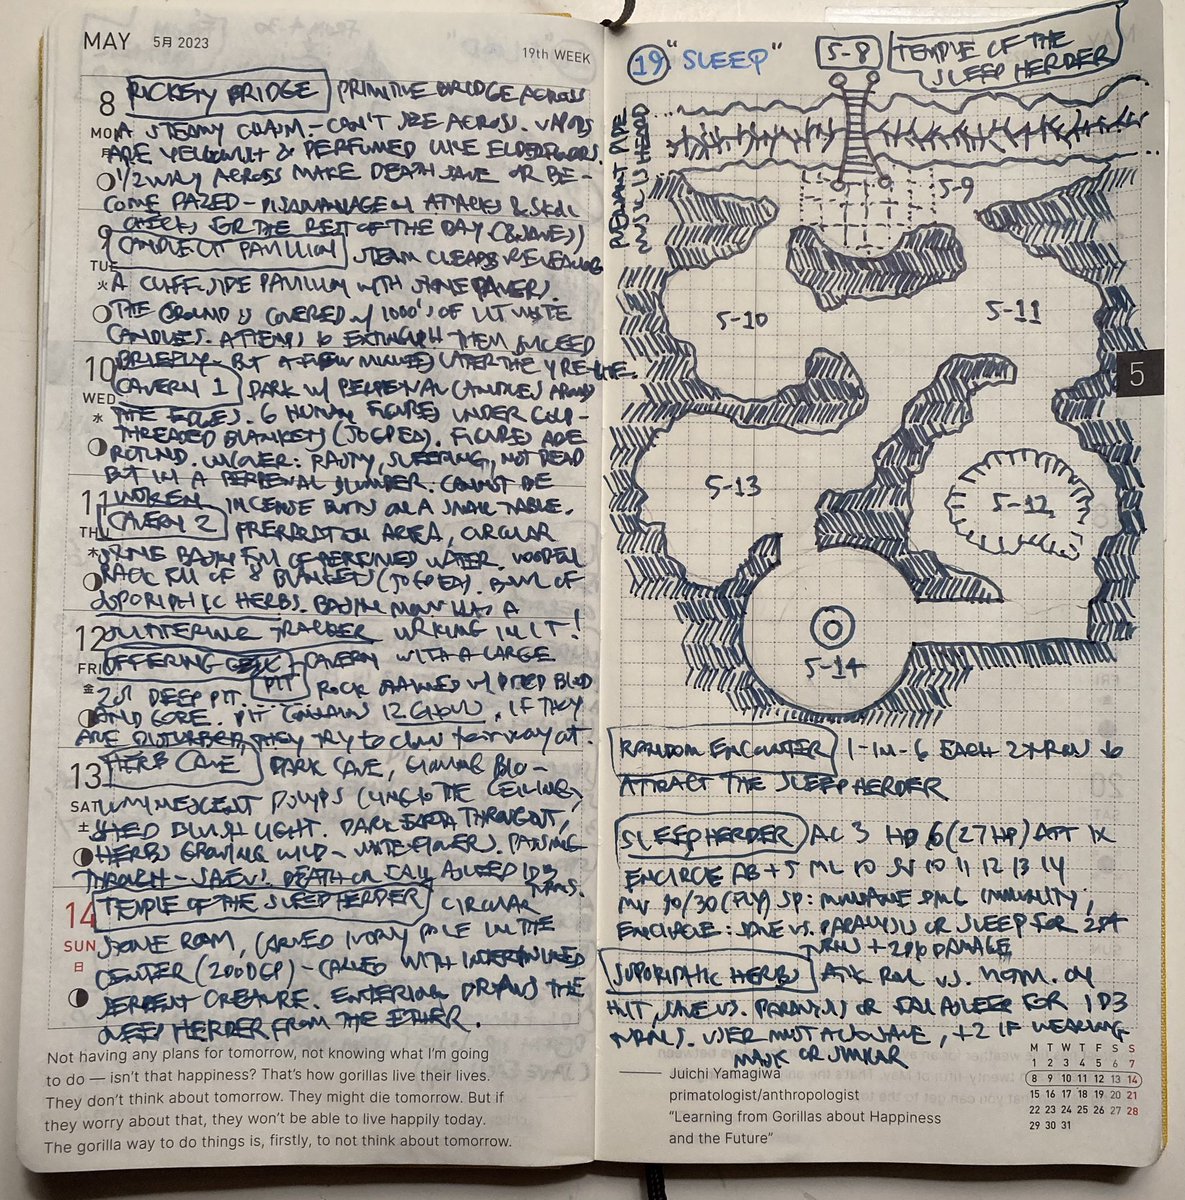 MAY 5月 2023
19th WEEK
8
MON
RICKETY BRIDGE PRIMITIVE BRIDGE ACROSS
A STEAMY CHASM - CAN'T SEE ACROSS. VAPORS
ARE & PERFUMED LIKE ELDERFLOWERS.
1/2 WAY ACROSS MAKE DEATH SAVE OR BE-
COME DAZED - DISADVANTAGE ON ATTACKS & SKILL
CHECKS FOR THE REST OF THE DAY (& SAVES)
9
TUE
火
CANDLELIT PAVILLION STEAM CLEARS REVEALING
A CLIFF-SIDE PAVILLION WITH STONE PAVERS.
THE GROUND IS COVERED W/ 1000'S OF LIT WHITE
CANDLES. ATTEMPTS TO EXTINGUISH THEM SUCCEED
BRIEFLY - BUT A FEW MINUTES LATER THEY RE-LITE.
10
WED
水
CAVERN 1 DARK W/ PERPETUAL CANDLES AROUND
THE EDGES. 6 HUMAN FIGURES UNDER GOLD-
THREADED BLANKETS (50 GP EA). FIGURES ARE
ROTUND. UNCOVER: PASTY, SLEEPING, NOT DEAD
BUT IN A PERPETUAL SLUMBER. CANNOT BE
WOKEN. INCENSE BURNS ON A SMALL TABLE.
11
THU
木
CAVERN 2 PREPARATION AREA, CIRCULAR
STONE BASIN FULL OF PERFUMED WATER. WOODEN
RACK FULL OF 8 BLANKETS (50 GP EA). BOWL OF
SOPORIPHIC HERBS. BASIN HAS A
WORKING IN IT!
12
FRI
金
OFFERING PIT CAVERN WITH A LARGE
20' DEEP PIT. ROCK STAINED W/ DRIED BLOOD
AND GORE. PIT CONTAINS 12 GHOULS. IF THEY
ARE DISTURBED, THEY TRY TO CLAW THEIR WAY OUT.
13
SAT
土
HERB CAVE DARK CAVE, GLOWING BIO-
LUMINESCENT POLYPS CLING TO THE CEILING,
SHED BLUISH LIGHT. DARK EARTH THROUGHOUT,
HERBS GROWING WILD - WHITE FLOWERS. PASSING
THROUGH - SAVE VS. DEATH OR FALL ASLEEP 1D3
TURNS.
14
SUN
日
TEMPLE OF THE SLEEP HERDER CIRCULAR
STONE ROOM, CARVED IVORY POLE IN THE
CENTER (2000 GP) - CARVED WITH INTERTWINED
SERPENT CREATURE. ENTERING DRAWS THE
SLEEP HERDER FROM THE ETHER.
Not having any plans for tomorrow, not knowing what I'm going
to do — isn't that happiness? That's how gorillas live their lives.
They don't think about tomorrow. They might die tomorrow. But if
they worry about that, they won't be able to live happily today.
The gorilla way to do things is, firstly, to not think about tomorrow.
19 "SLEEP"
5-8
TEMPLE OF THE
SLEEP HERDER
PIPE
MUSIC IS HEARD
5-9
5-10
5-11
5
5-13
5-12
5-14
RANDOM ENCOUNTER 1-IN-6 EACH 2 TURNS TO
ATTRACT THE SLEEP HERDER
SLEEP HERDER AC 3 HD 6 (27 HP) ATT 1X
ENCIRCLE AB +5 ML 10 SV 10 11 12 13 14
MV 90/30 (FLY) SP: MUNDANE DMG IMMUNITY,
ENCIRCLE: SAVE VS. PARALYSIS OR SLEEP FOR
TURNS + DAMAGE
SOPORIPHIC HERBS ATK ROLL VS. NOTM. ON
HIT, SAVE VS. PARALYSIS OR FALL ASLEEP FOR 1D3
TURNS. USER MUST ALSO SAVE, +2 IF WEARING
MASK OR SIMILAR
Juichi Yamagiwa
primatologist/anthropologist
"Learning from Gorillas about Happiness
and the Future"
M T W T F S S
1 2 3 4 5 6 7
8 9 10 11 12 13 14
15 16 17 18 19 20 21
22 23 24 25 26 27 28
29 30 31